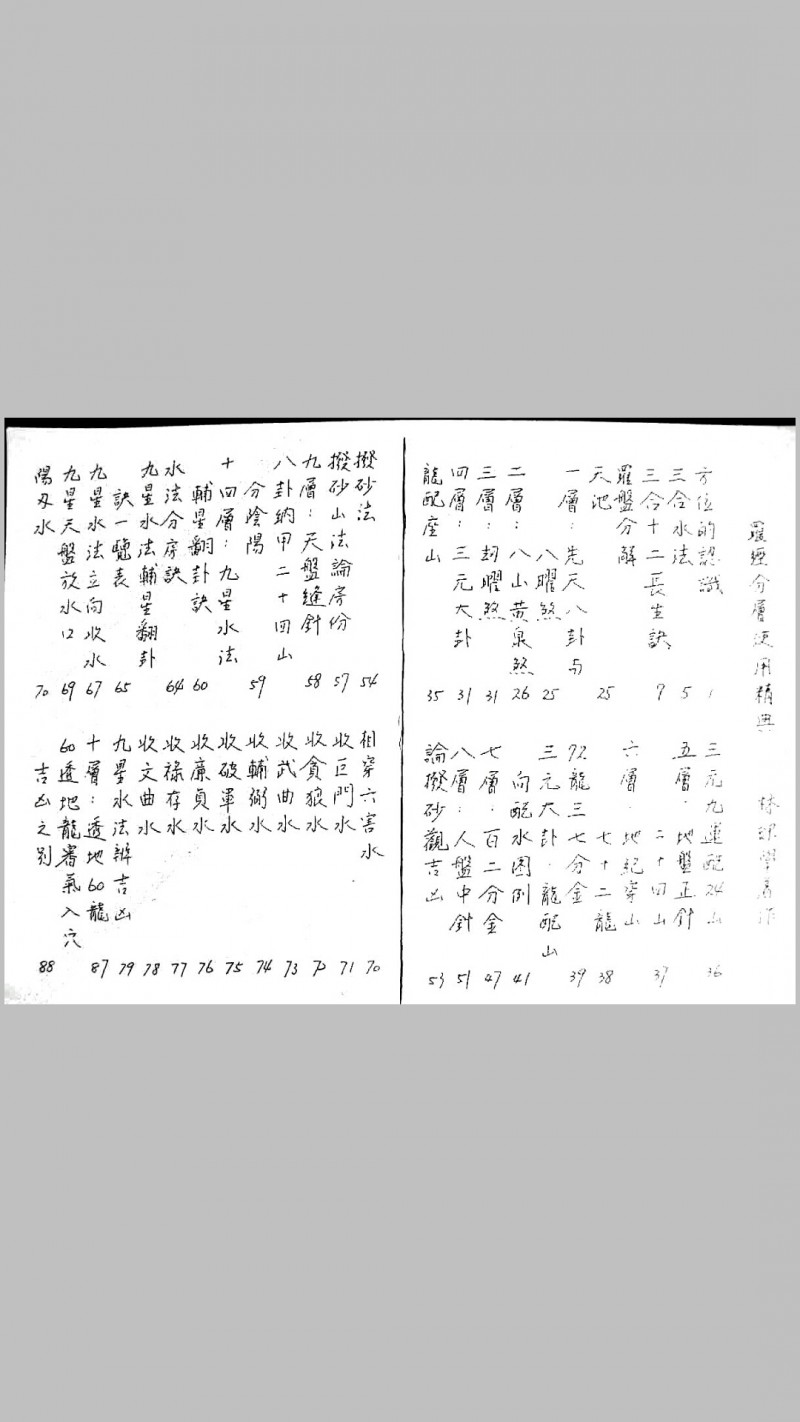 羅經分層使用精典
方位的認識 1
三合水法 5
三合十二長生訣 9
羅盤分解
天池 25
一層：先天八卦与
八曜煞 25
二層：八山黃泉煞 26
三層：劫曜煞 31
四層：三元大卦 31
龍配座山 35
三元九運配24山 36
五層：地盤正針
二十四山 37
六層：地紀穿山
七十二龍 38
72龍三七分金 39
三元大卦：龍配山
向配水圖例 41
七層：百二分金 47
八層：人盤中針 51
論撥砂觀吉凶 53
撥砂法 54
撥砂山法論房份 57
九層：天盤縫針 58
八卦納甲二十四山
分陰陽 59
十四層：九星水法
輔星翻卦訣 60
水法分房訣 64
九星水法輔星翻卦
訣一覽表 65
九星水法立向收水 67
九星天盤放水口 69
陽刃水 70
相穿六害水 70
收巨門水 71
收貪狼水 72
收武曲水 73
收輔弼水 74
收破軍水 75
收廉貞水 76
收祿存水 77
收文曲水 78
九星水法辨吉凶 79
十層：透地60龍 87
60透地龍審氣入穴
吉凶之别 88